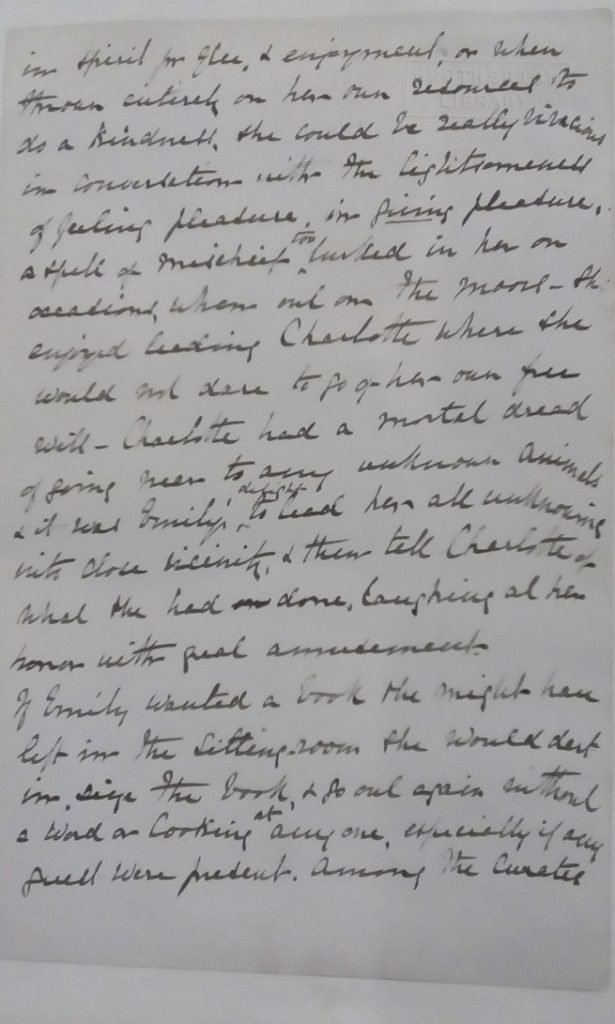 in spirit for glee, & enjoyment, or when
thrown entirely on her own resources to
do a kindness, she could be really vivacious
in conversation with the lightsomeness
of feeling pleasure, in giving pleasure,
a spell of mischief too lurked in her on
occasions, when out on the moors – she
enjoyed leading Charlotte where she
would not dare to go of her own free
will – Charlotte had a mortal dread
of going near to any unknown animals
& it was Emily's delight to lead her all unknowing
into close vicinity, & then tell Charlotte of
what she had done, laughing at her
horror with great amusement
If Emily wanted a book she might have
left in the sitting-room she would dart
in, seize the book, & go out again without
a word or looking at anyone, especially if any
guest were present. Among the Curates
BROTHERTON
LIBRARY